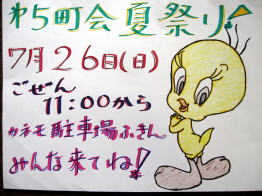 第5町会夏祭り!
7月26日(日)
ごぜん
11:00から
カネモ駐車場ふきん
みんな来てね!